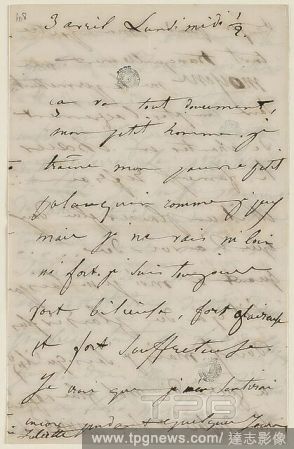 3 avril Lundi midi ½
ça va tout doucement,
mon ptit homme, je
traîne mon pauvre petit
palanquin comme je puis
mais je ne vais ni loin
ni fort. je suis toujours
fort bilieuse, fort glaireuse
et fort souffreteuse.
Je crois que je
encore pendant quelques jours
Juliette
TPG
www.tpgnews.com / 達志影像